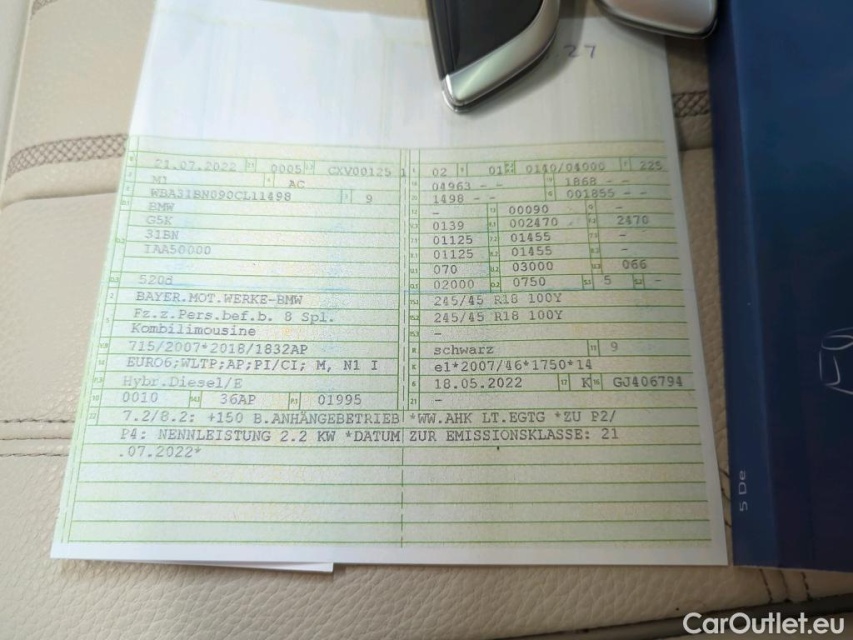 27
21.07.2022 0005 CXV00125 1 02 01 0140/04000 225
M1 AC 04963 - - 1868 - -
WBA31BN090CL11498 9 1498 - - 001855 - -
BMW - 00090 -
G5K 0139 002470 2470
31BN 01125 01455 -
IAA50000 01125 01455 -
070 03000 066
520d 02000 0750 5 -
BAYER.MOT.WERKE-BMW 245/45 R18 100Y
Fz.z.Pers.bef.b. 8 Spl. 245/45 R18 100Y
Kombilimousine -
715/2007*2018/1832AP schwarz 9
EURO6;WLTP;AP;PI/CI; M, N1 I e1*2007/46*1750*14
Hybr.Diesel/E 18.05.2022 K GJ406794
0010 36AP 01995 -
7.2/8.2: +150 B.ANHÄNGEBETRIEB *WW.AHK LT.EGTG *ZU P2/
P4: NENNLEISTUNG 2.2 KW *DATUM ZUR EMISSIONSKLASSE: 21
.07.2022*
5 De
CarOutlet.eu